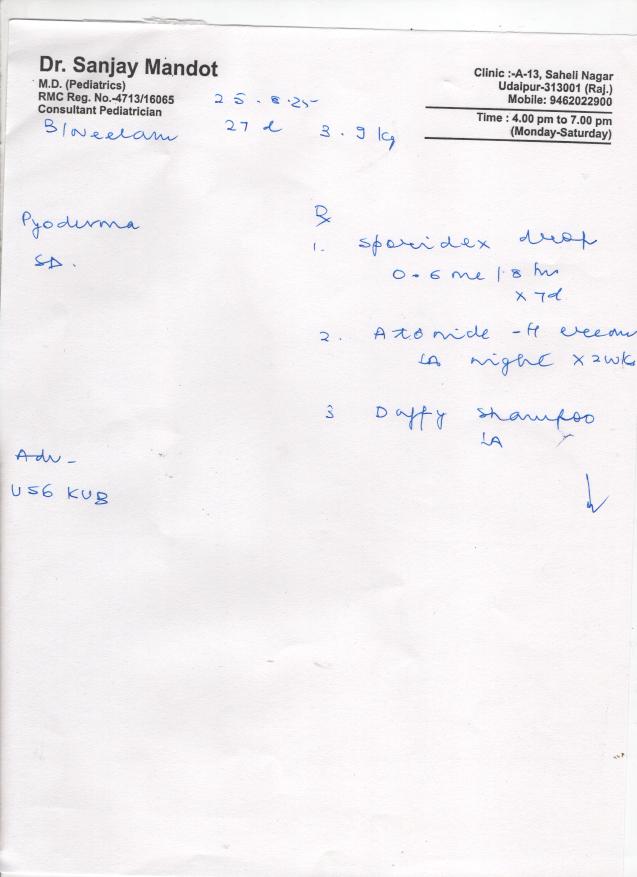 Dr. Sanjay Mandot
M.D. (Pediatrics)
RMC Reg. No.-4713/16065
Consultant Pediatrician
Clinic :-A-13, Saheli Nagar
Udaipur-313001 (Raj.)
Mobile: 9462022900
Time : 4.00 pm to 7.00 pm
(Monday-Saturday)
25.8.25
B/Neelam 27 d 3.9 kg
Pyoderma
SD.
Rx
1. Sporidex drop
0.6 ml / 8 hr
x 7d
2. Atonide -H cream
LA night x 2wk
3 Daffy shampoo
LA
Adv -
USG KUB